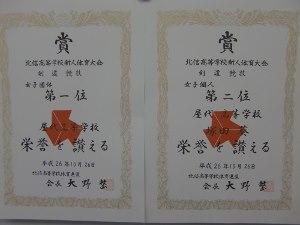 賞
北信高等学校新人体育大会
剣道競技
女子団体
第一位
屋代高等学校
栄誉を讃える
平成26年10月26日
北信高等学校体育連盟
会長 大野
賞
北信高等学校新人体育大会
剣道競技
女子個人
第二位
屋代高等学校
栄誉を讃える
平成26年10月26日
北信高等学校体育連盟
会長 大野